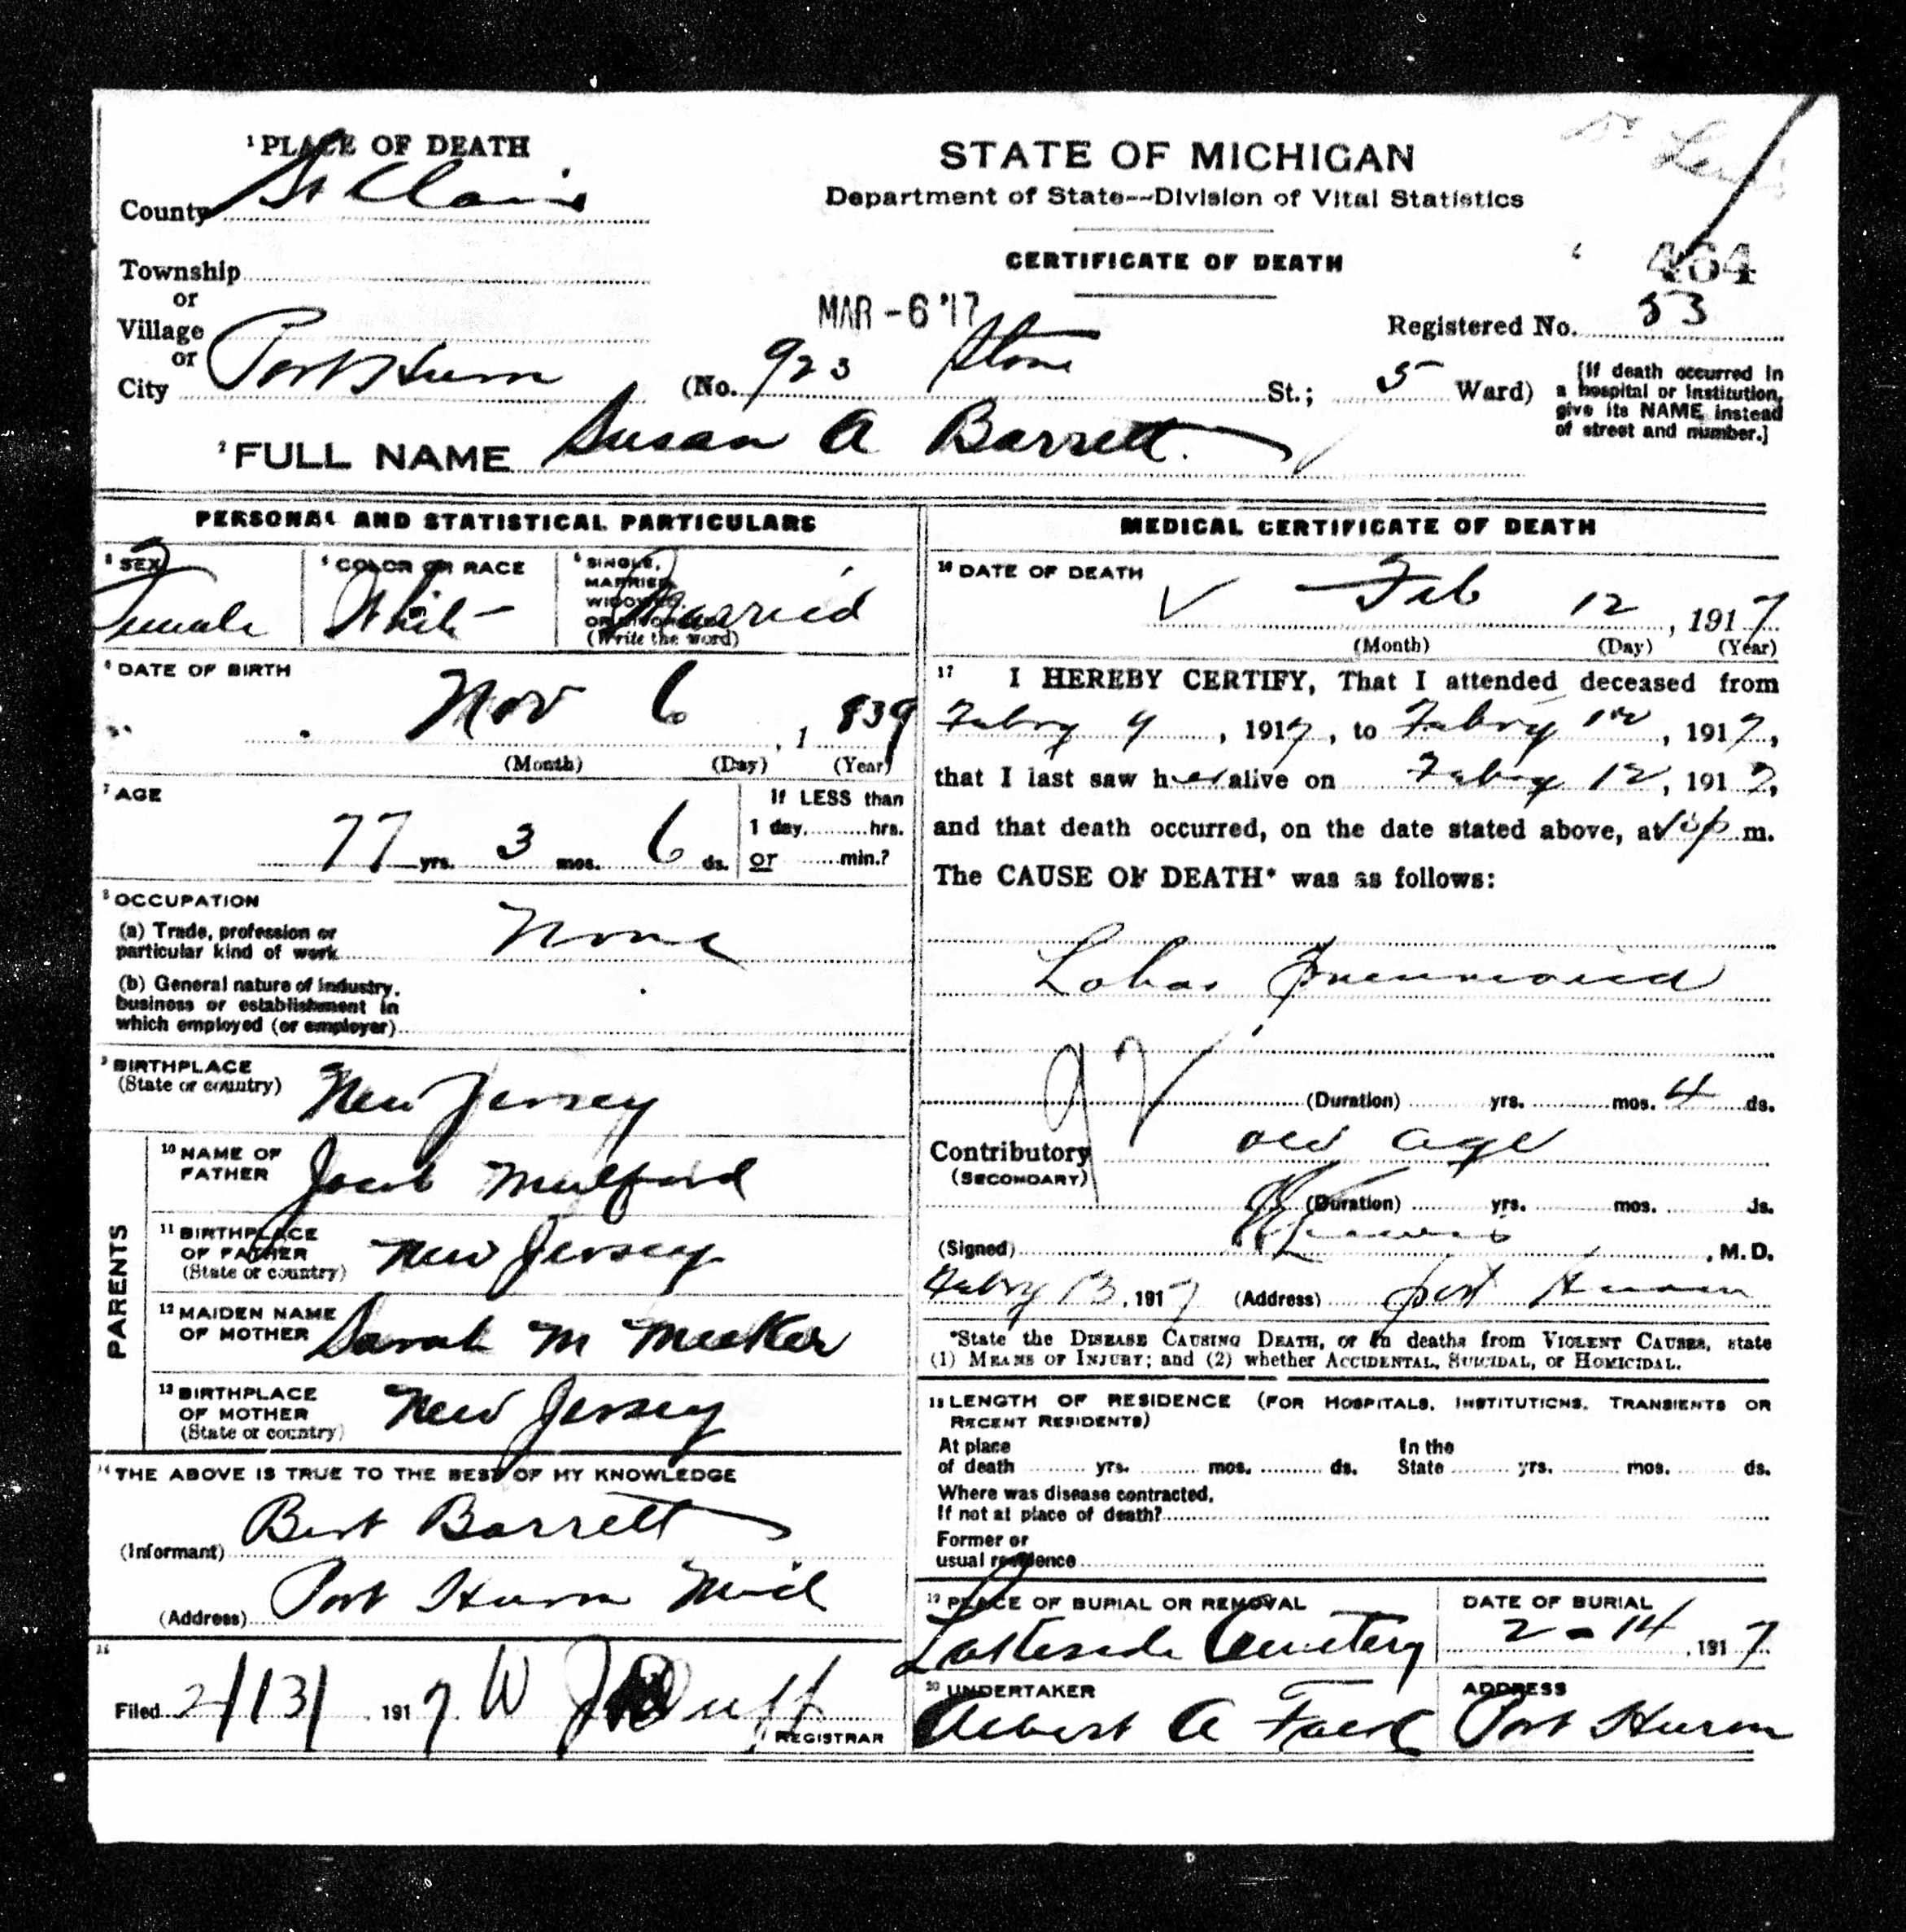 1 PLACE OF DEATH
County St Clair
Township
or
Village
or
City Port Huron
STATE OF MICHIGAN
Department of State--Division of Vital Statistics
CERTIFICATE OF DEATH
MAR -6 '17
464
Registered No. 53
(No. 923 Stone St.; 5 Ward)
[If death occurred in
a hospital or institution,
give its NAME instead
of street and number.]
2 FULL NAME Susan A Barrett.
PERSONAL AND STATISTICAL PARTICULARS
3 SEX
Female
4 COLOR OR RACE
White
5 SINGLE,
MARRIED,
WIDOWED,
OR DIVORCED
(Write the word)
Married
6 DATE OF BIRTH
Nov 6, 1839
(Month) (Day) (Year)
7 AGE
77 yrs. 3 mos. 6 ds.
If LESS than
1 day, hrs.
or min.?
8 OCCUPATION
(a) Trade, profession or
particular kind of work None
(b) General nature of industry,
business or establishment in
which employed (or employer)
9 BIRTHPLACE
(State or country) New Jersey
PARENTS
10 NAME OF
FATHER Jacob Mulford
11 BIRTHPLACE
OF FATHER
(State or country) New Jersey
12 MAIDEN NAME
OF MOTHER Sarah M Meeker
13 BIRTHPLACE
OF MOTHER
(State or country) New Jersey
14 THE ABOVE IS TRUE TO THE BEST OF MY KNOWLEDGE
(Informant) Bert Barrett
(Address) Port Huron Mich
15
Filed 2/13/, 1917 W J Duff
REGISTRAR
MEDICAL CERTIFICATE OF DEATH
16 DATE OF DEATH
Feb 12, 1917
(Month) (Day) (Year)
17 I HEREBY CERTIFY, That I attended deceased from
Febry 9, 1917, to Febry 12, 1917,
that I last saw her alive on Febry 12, 1917,
and that death occurred, on the date stated above, at p m.
The CAUSE OF DEATH* was as follows:
Lobar Pneumonia
92
(Duration) yrs. mos. 4 ds.
Contributory old age
(SECONDARY)
(Duration) yrs. mos. ds.
(Signed) Lewis, M.D.
Febry 13, 1917 (Address) Port Huron
*State the DISEASE CAUSING DEATH, or in deaths from VIOLENT CAUSES, state
(1) MEANS OF INJURY; and (2) whether ACCIDENTAL, SUICIDAL, or HOMICIDAL.
18 LENGTH OF RESIDENCE (FOR HOSPITALS, INSTITUTIONS, TRANSIENTS OR
RECENT RESIDENTS)
At place
of death yrs. mos. ds.
In the
State yrs. mos. ds.
Where was disease contracted,
If not at place of death?
Former or
usual residence
19 PLACE OF BURIAL OR REMOVAL
Lakeside Cemetery
DATE OF BURIAL
2-14, 1917
20 UNDERTAKER
Albert A Falk
ADDRESS
Port Huron